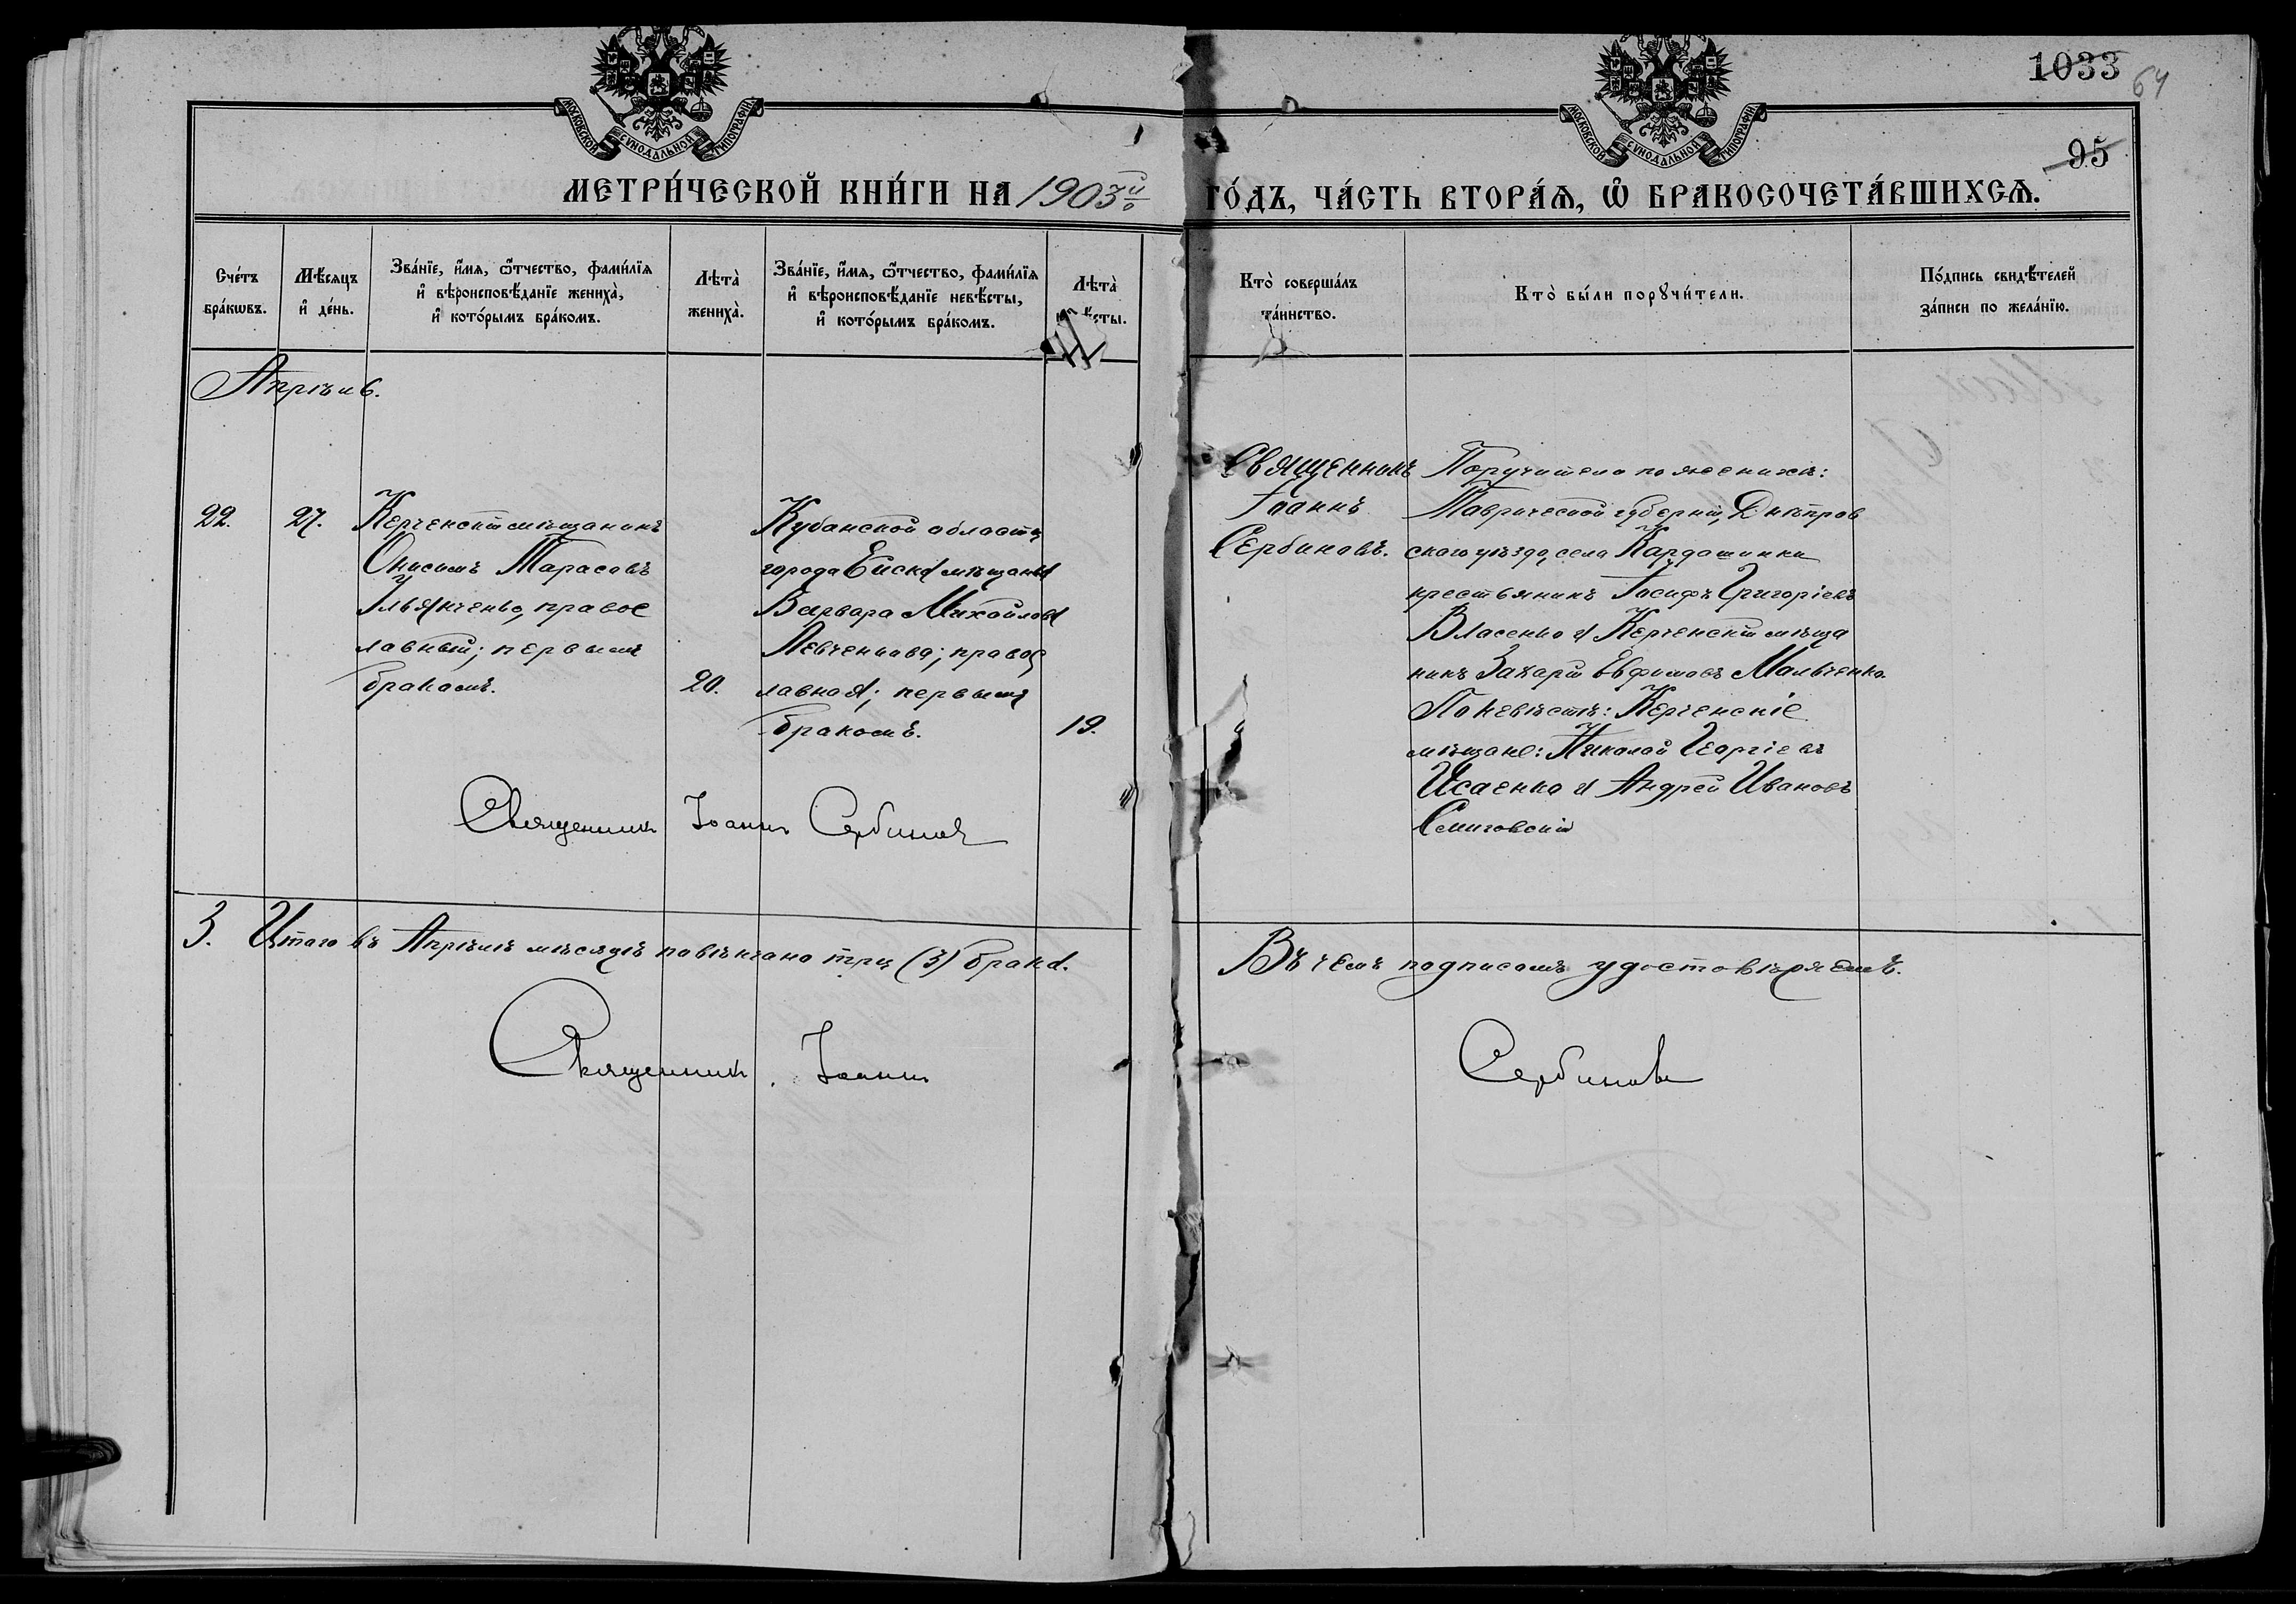 МОСКОВСКОЙ СѴНОДАЛЬНОЙ ТИПОГРАФІИ
МОСКОВСКОЙ СѴНОДАЛЬНОЙ ТИПОГРАФІИ
1033
64
95
МЕТРИ́ЧЕСКОЙ КНИ́ГИ НА 1903й ГО́ДЪ, ЧА́СТЬ ВТОРА́Ѧ, Ѡ҆ БРАКОСОЧЕТА́ВШИХСѦ.
Сче́тъ бра́кѡвъ.
Мѣ́сѧцъ и҆ де́нь.
Зва́нїе, и҆́мѧ, ѻ҆́тчество, фами́лїѧ
и҆ вѣроисповѣ́данїе женихà,
и҆ кото́рымъ бра́комъ.
Лѣта̀ жениха̀.
Зва́нїе, и҆́мѧ, ѻ҆́тчество, фами́лїѧ
и҆ вѣроисповѣ́данїе невѣ́сты,
и҆ кото́рымъ бра́комъ.
Лѣта̀
ѣ́сты.
Кто̀ соверша́лъ та́инство.
Кто̀ бы́ли порꙋчи́тели.
По́дпись свидѣ́телей
за́писи по жела́нїю.
Апрѣль.
22.
27.
Керченскій мѣщанинъ
Онисимъ Тарасовъ
Ульянченко, право
лавный; первымъ
бракомъ.
20.
Кубанской области
города Ейска мѣщанка
Варвара Михайлова
Левченкова; право
лавная; первымъ
бракомъ.
19.
Священникъ
Іоаннъ
Сербиновъ.
Поручители по женихѣ:
Таврической губерніи, Днѣпров
скаго уѣзда, села Кардашинки
крестьянинъ Іосифъ Григоріевъ
Власенко и Керченскій мѣща
нинъ Захарій Евфимовъ Мальченко.
По невѣстѣ: Керченскіе
мѣщане: Николай Георгіевъ
Исаенко и Андрей Ивановъ
Священникъ Іоаннъ Сербиновъ
3. Итого въ Апрѣлѣ мѣсяцѣ повѣнчано три (3) брака.
Въ чемъ подписомъ удостовѣряемъ.
Священникъ Іоаннъ Сербиновъ